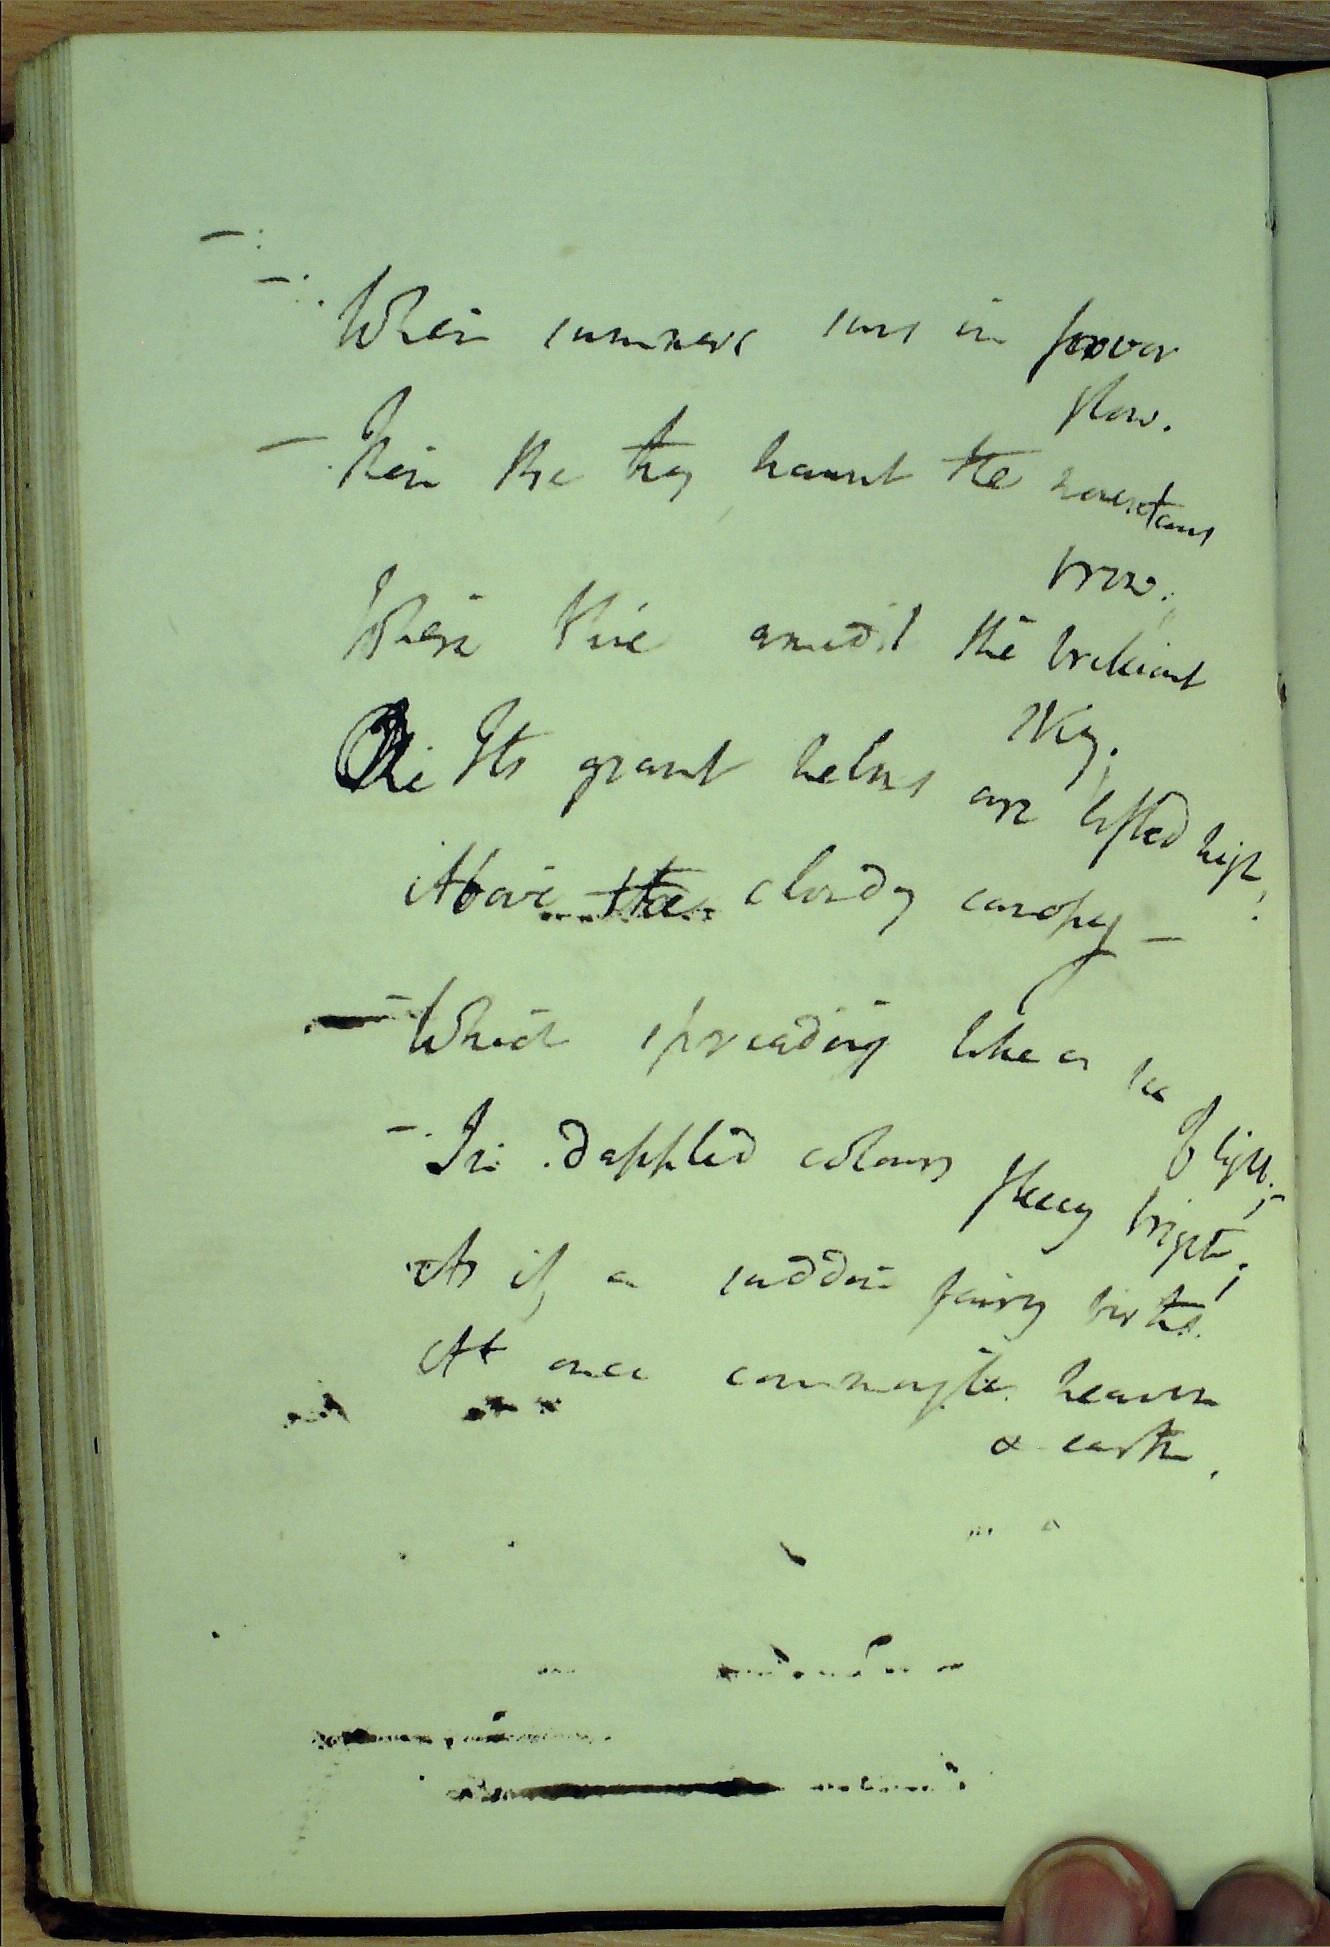 When summers suns in fervor
glow.
Then the they haunt the mountains
brow.
Where thine amidst the brilliant
sky.
The Its giant helms are lifted high,
Above the cloudy canopy —
Which spreading like a sea
of light;
In dappled colours fleecy bright;
As if a sudden fairy birth
At once commingle heaven
& earth.